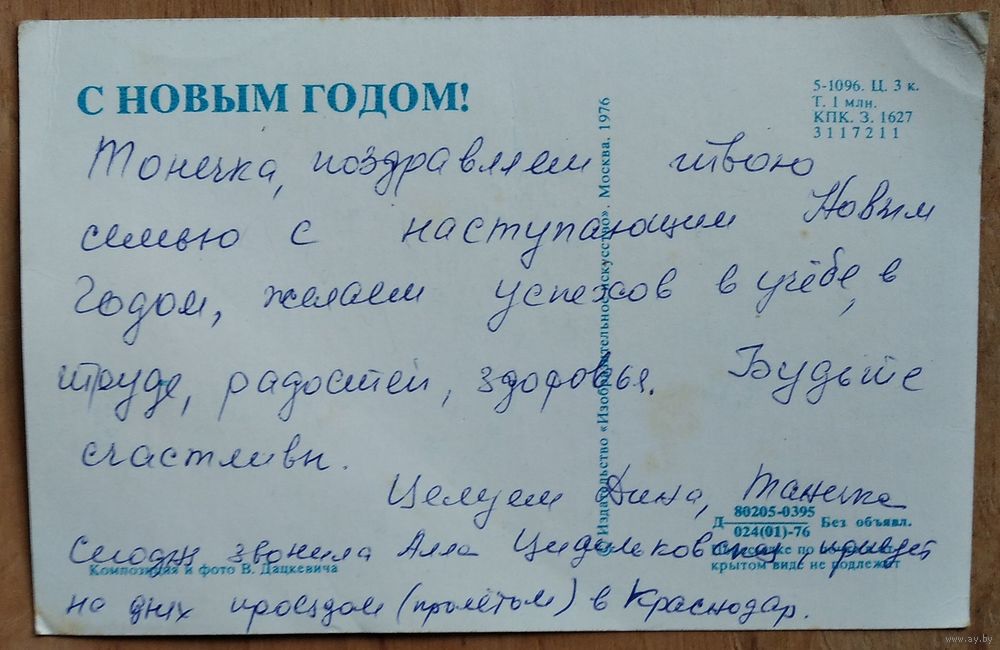 С НОВЫМ ГОДОМ!
5-1096. Ц. 3 к.
Т. 1 млн.
КПК. З. 1627
3117211
Тонечка, поздравляем твою
семью с наступающим Новым
Годом, желаем успехов в учёбе, в
труде, радостей, здоровья. Будьте
счастливы.
Целуем Дина, Танечка
Сегодня звонила Алла
на днях проездом (пролётом) в Краснодар.
Издательство «Изобразительное искусство». Москва. 1976
Д 80205-0395 Без объявл.
024(01)-76
крытом виде не подлежит
Композиция и фото В. Дацкевича
www.ay.by